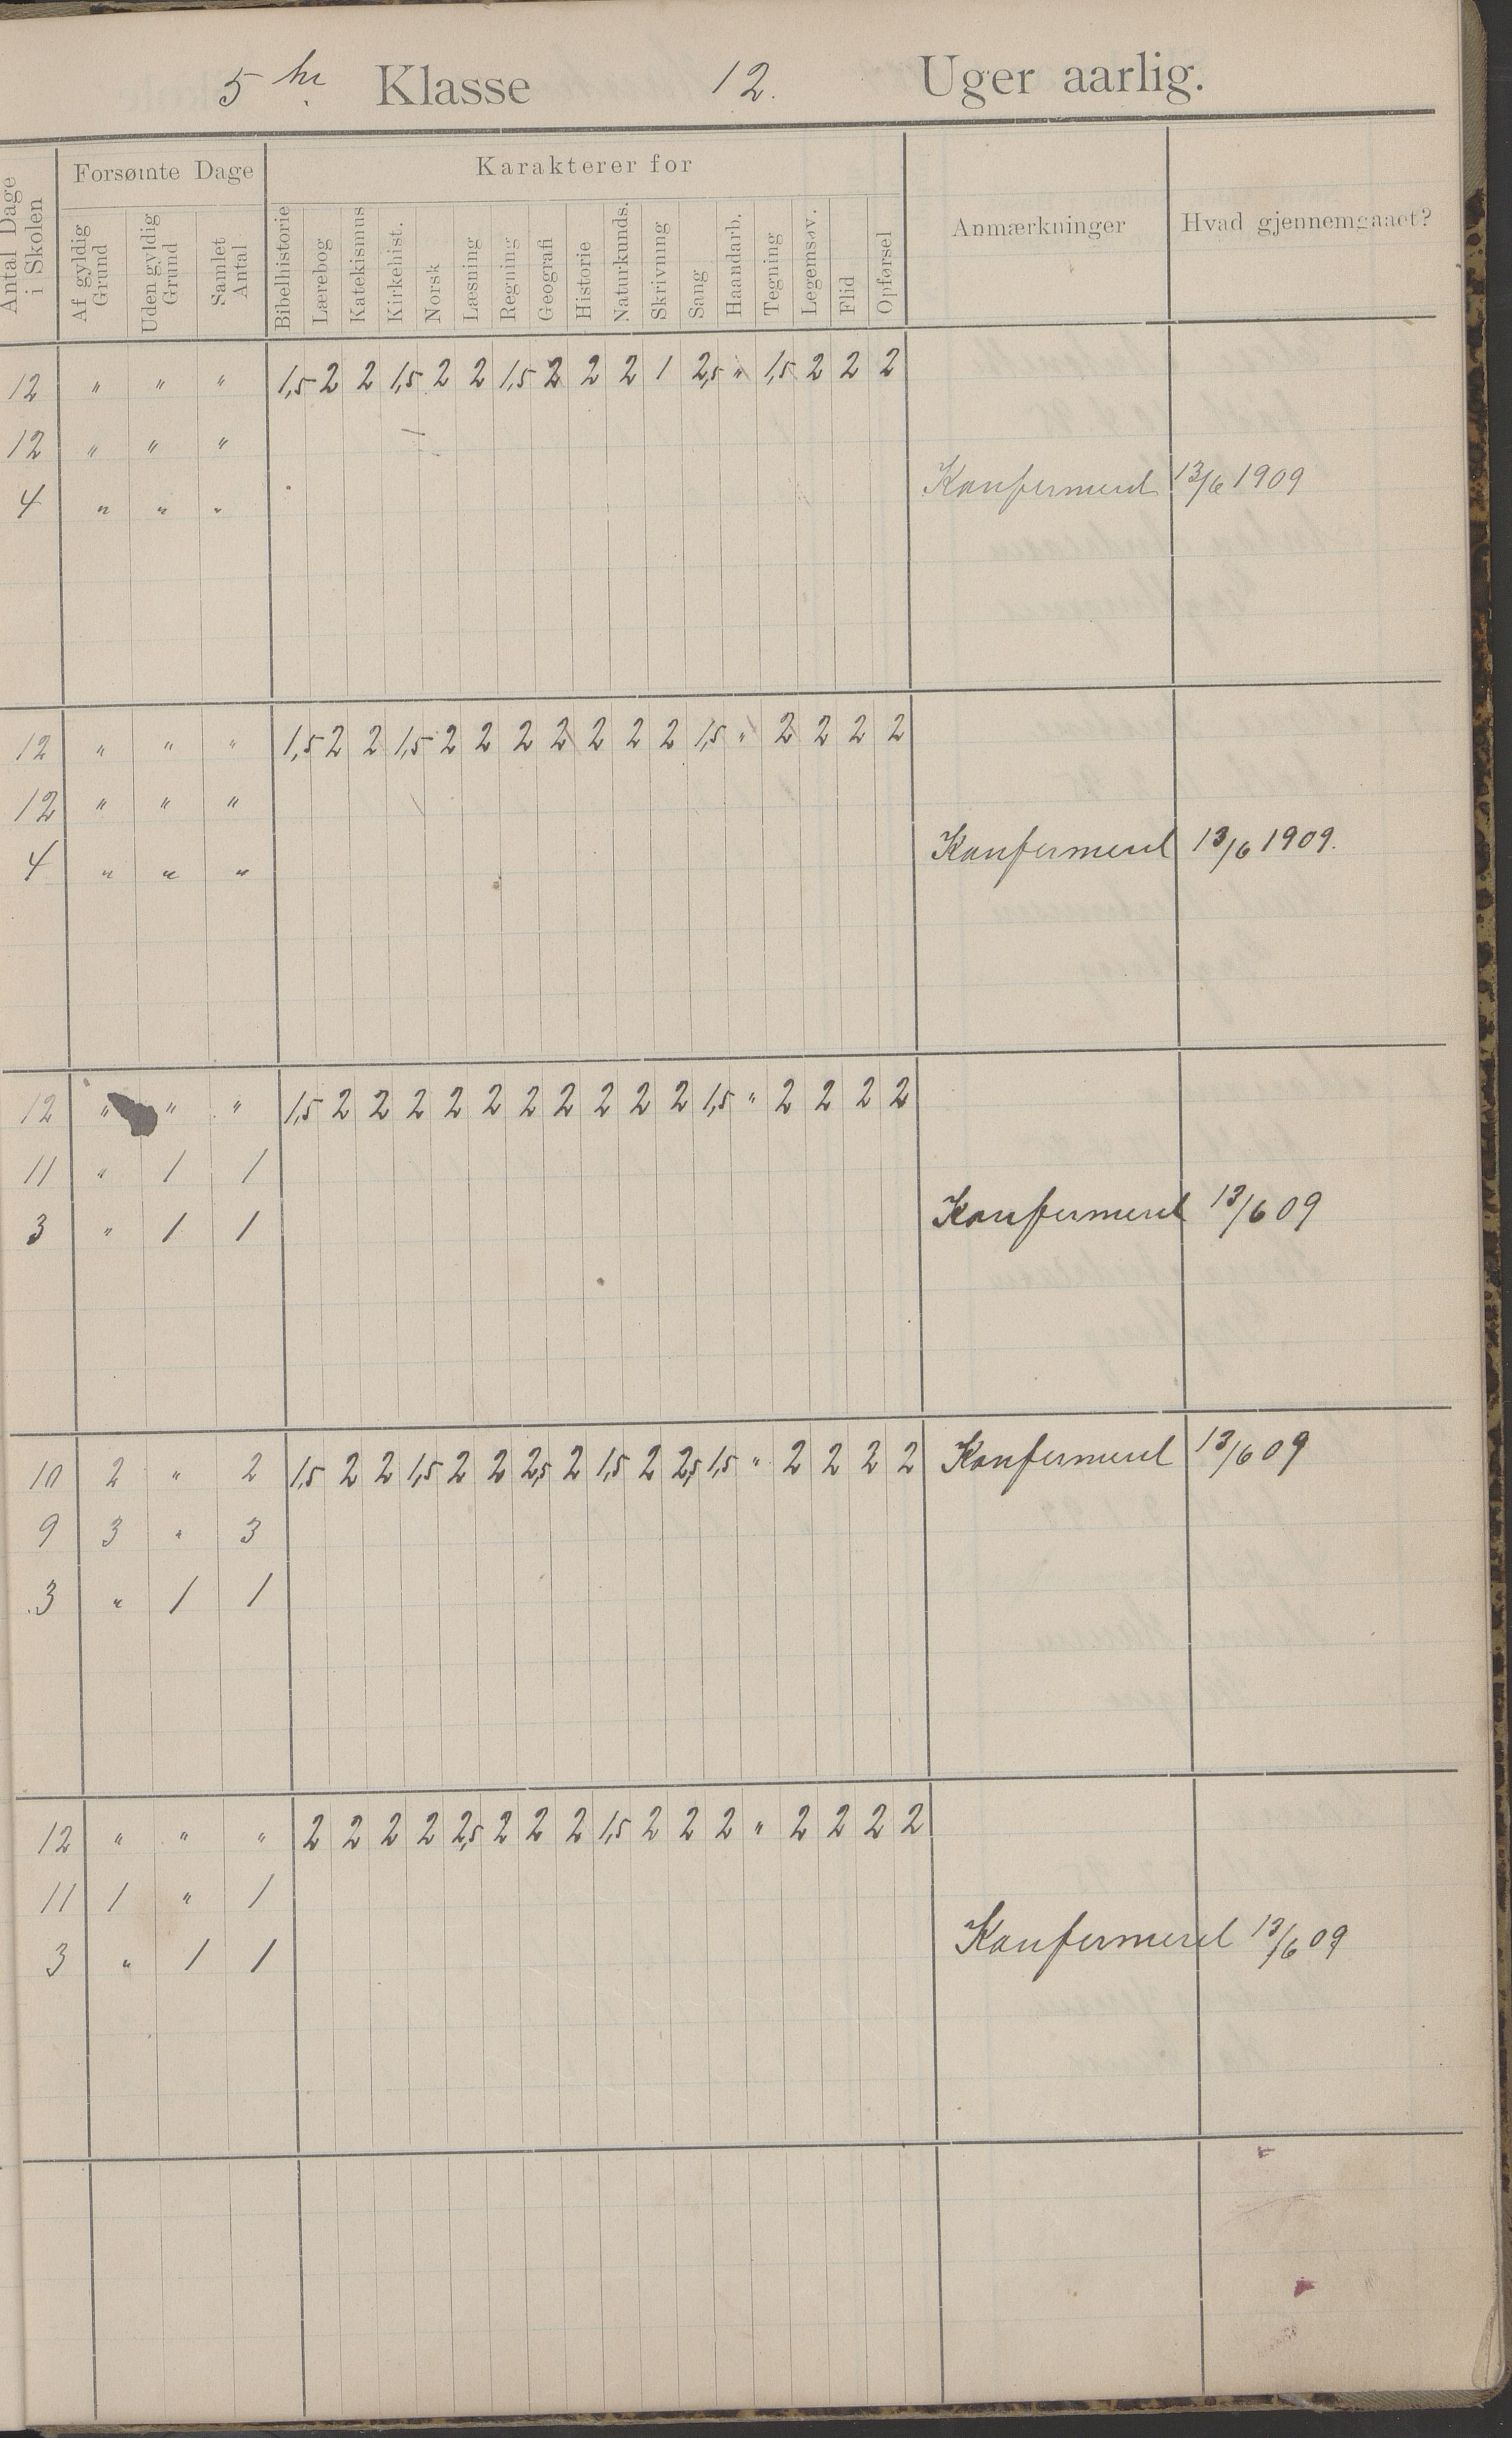 5te Klasse 12. Uger aarlig.
Antal Dage i Skolen Forsømte Dage Karakterer for Anmærkninger Hvad gjennemgaaet?
Af gyldig Grund Uden gyldig Grund Samlet Antal Bibelhistorie Lærebog Katekismus Kirkehist. Norsk Læsning Regning Geografi Historie Naturkunds. Skrivning Sang Haandarb. Tegning Legemsøv. Flid Opførsel
12 " " " 1,5 2 2 1,5 2 2 1,5 2 2 2 1 2,5 " 1,5 2 2 2
12 " " "
4 " " " Konfermerd 13/6 1909
12 " " " 1,5 2 2 1,5 2 2 2 2 2 2 2 1,5 " 2 2 2 2
12 " " "
4 " " " Konfermerd 13/6 1909.
12 " " " 1,5 2 2 2 2 2 2 2 2 2 2 1,5 " 2 2 2 2
11 " 1 1
3 " 1 1 Konfermerd 13/6 09
10 2 " 2 1,5 2 2 1,5 2 2 2,5 2 1,5 2 2,5 1,5 " 2 2 2 2 Konfermerd 13/6 09
9 3 " 3
3 " 1 1
12 " " " 2 2 2 2 2,5 2 2 2 1,5 2 2 2 " 2 2 2 2
11 1 " 1
3 " 1 1 Konfermerd 13/6 09